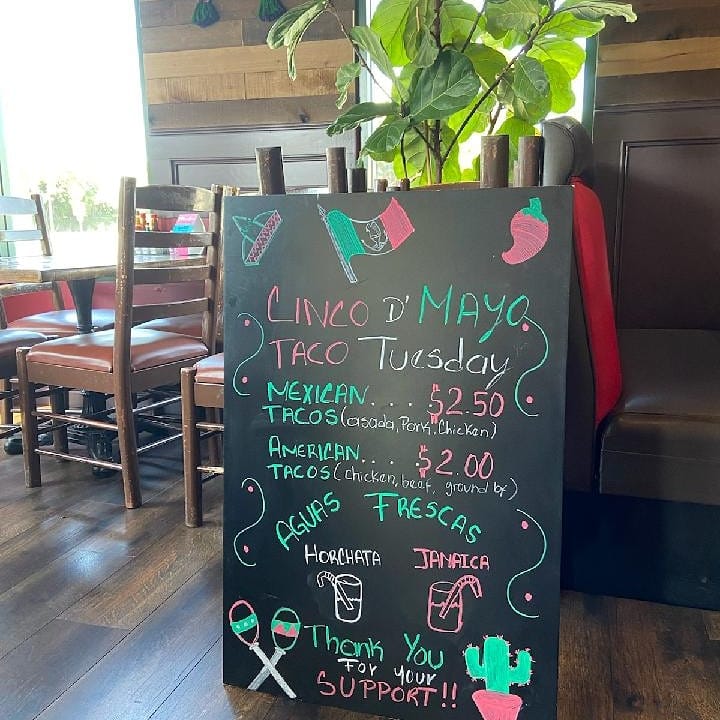 CINCO D' MAYO
TACO Tuesday
MEXICAN.... $2.50
TACOS (asada, Pork, Chicken)
AMERICAN.... $2.00
TACOS (chicken, beef, ground bf)
AGUAS FRESCAS
HORCHATA JAMAICA
Thank You
FOR your
SUPPORT!!